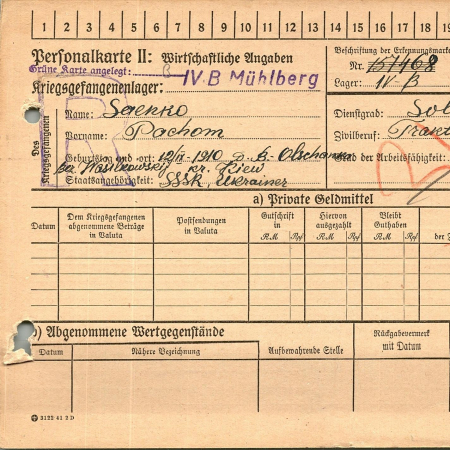 1 2 3 4 5 6 7 8 9 10 11 12 13 14 15 16 17 18 19
Personalkarte II: Wirtschaftliche Angaben
Beschriftung der Erkennungsmarke
Grüne Karte angelegt:
Nr. 157468
Kriegsgefangenenlager: IV B Mühlberg
Lager: IV-B
Des Kriegsgefangenen
Name: Saenko
Dienstgrad: Sol
Vorname: Pachom
Zivilberuf:
Geburtstag und -ort: 12/II-1910 D. B. Olschanka
Grad der Arbeitsfähigkeit:
Staatsangehörigkeit: SSSR, Ukrainer
kr. Kiew
a) Private Geldmittel
Datum
Dem Kriegsgefangenen abgenommene Beträge in Valuta
Postsendungen in Valuta
Gutschrift in
Hiervon ausgezahlt
Bleibt Guthaben
RM Rpf RM Rpf RM Rpf
b) Abgenommene Wertgegenstände
Rückgabevermerk mit Datum
Datum
Nähere Bezeichnung
Aufbewahrende Stelle
3122 41 2 D